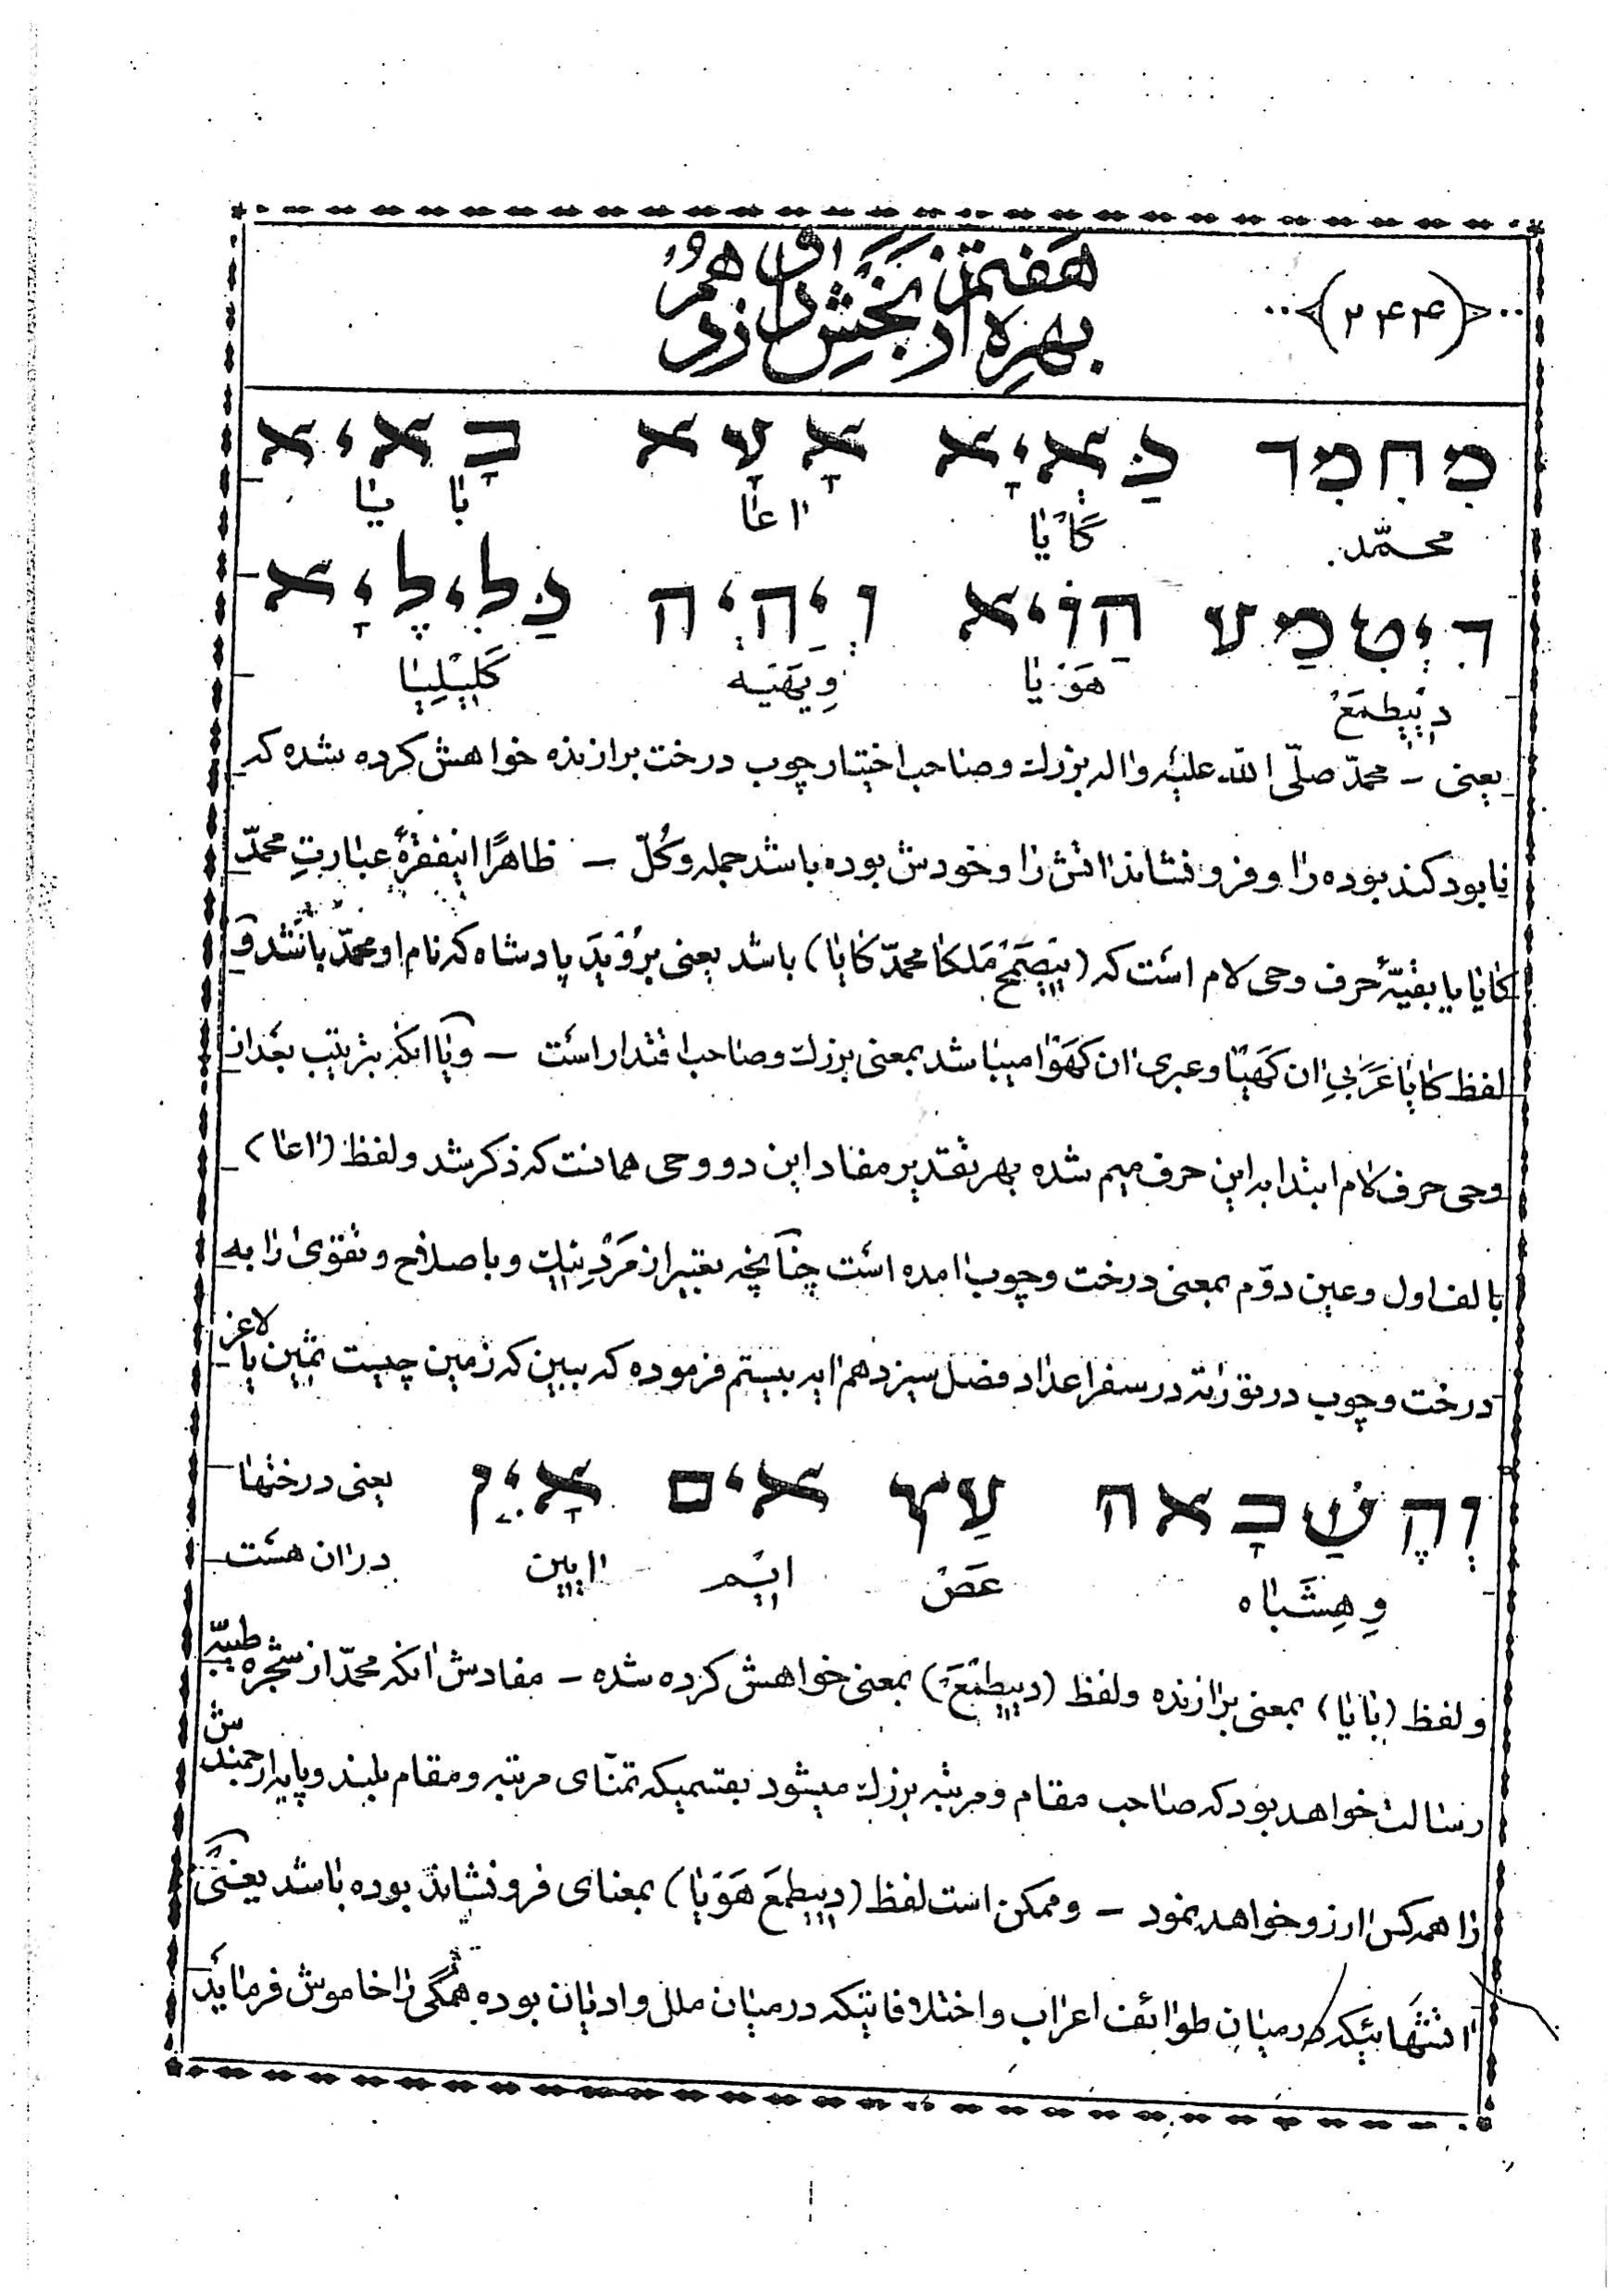 ﴿۲۴۴﴾
هفتمین بخش از اوراق هم
بهره
מִחִמִד כַּאִיָא אָעָא בָאיא
محمّد کَایا اعا با یا
דִיְטִמַע הַוֹיא וְיַהִיְה כַּלִילֶיָא
دِیٖطِمَعْ هَوَیا وِیَهیَه کَلیٖلِیا
یعنی – محمّد صلّی الله علیه واله بزرك وصاحب اختیار چوب درخت برازنده خواهش کرده شده که
نابود کند بوده را و فرو نشاند اتش را وخودش بوده باشد جمله وکُلّ – ظاهرًا اینفقرهٔ عبارتِ محمّد
کایا یا بقیّهٔ حرف وحی لام است که (یٖصِمَحْ مَلکا محمّد کایا) باشد یعنی برُوْیَد پادشاه که نام او محمّد باشد و
لفظ کایا عَرَبیِ ان کَهَیّا وعبری ان کَهَوَا میباشد بمعنی بزرك وصاحب اقتدار است – ویا انکه بترتیب بعد از
وحی حرف لام ابتدا به این حرف میم شده بهر تقدیر مفاد این دو وحی همانست که ذکر شد ولفظ (اعا)
با الف اول وعین دوّم بمعنی درخت وچوب امده است چنانچه تعبیر از مَرْدِ نیك وبا صلاح وتقوی را به
درخت وچوب در توراته در سفر اعداد فصل سیزدهم ایه بیستم فرموده که ببین که زمین چیست ثمین یا لاغر
וְהֶשַׁבָאה עַץ אים אָיִן یعنی درختها
وِهِشَباه عَصْ ایٖم اایین در ان هست
ولفظ (بایا) بمعنی برازنده ولفظ (دیٖیطِمَعَ) بمعنی خواهش کرده شده – مفادش انکه محمّد از شجرهٔ طیبّه
رسالت خواهد بود که صاحب مقام ومرتبه بزرك میشود بقسمیکه تمنّای مرتبه ومقام بلند وپایه ارجمندش
را همه کس ارزو خواهد نمود – وممکن است لفظ (دیٖیطِمَعَ هَوَیا) بمعنای فرو نشاند بوده باشد یعنی
اتشهائیکه در میانِ طوائف اعراب واختلافاتیکه در میان ملل وادیان بوده همگی را خاموش فرماید